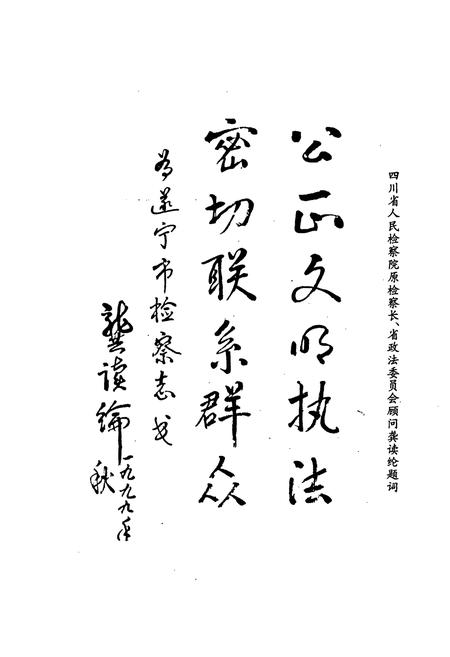 四川省人民检察院原检察长、省政法委员会顾问龚读纶题词
公正文明执法
密切联系群众
为遂宁市检察志题
龚读纶
一九九九年
秋